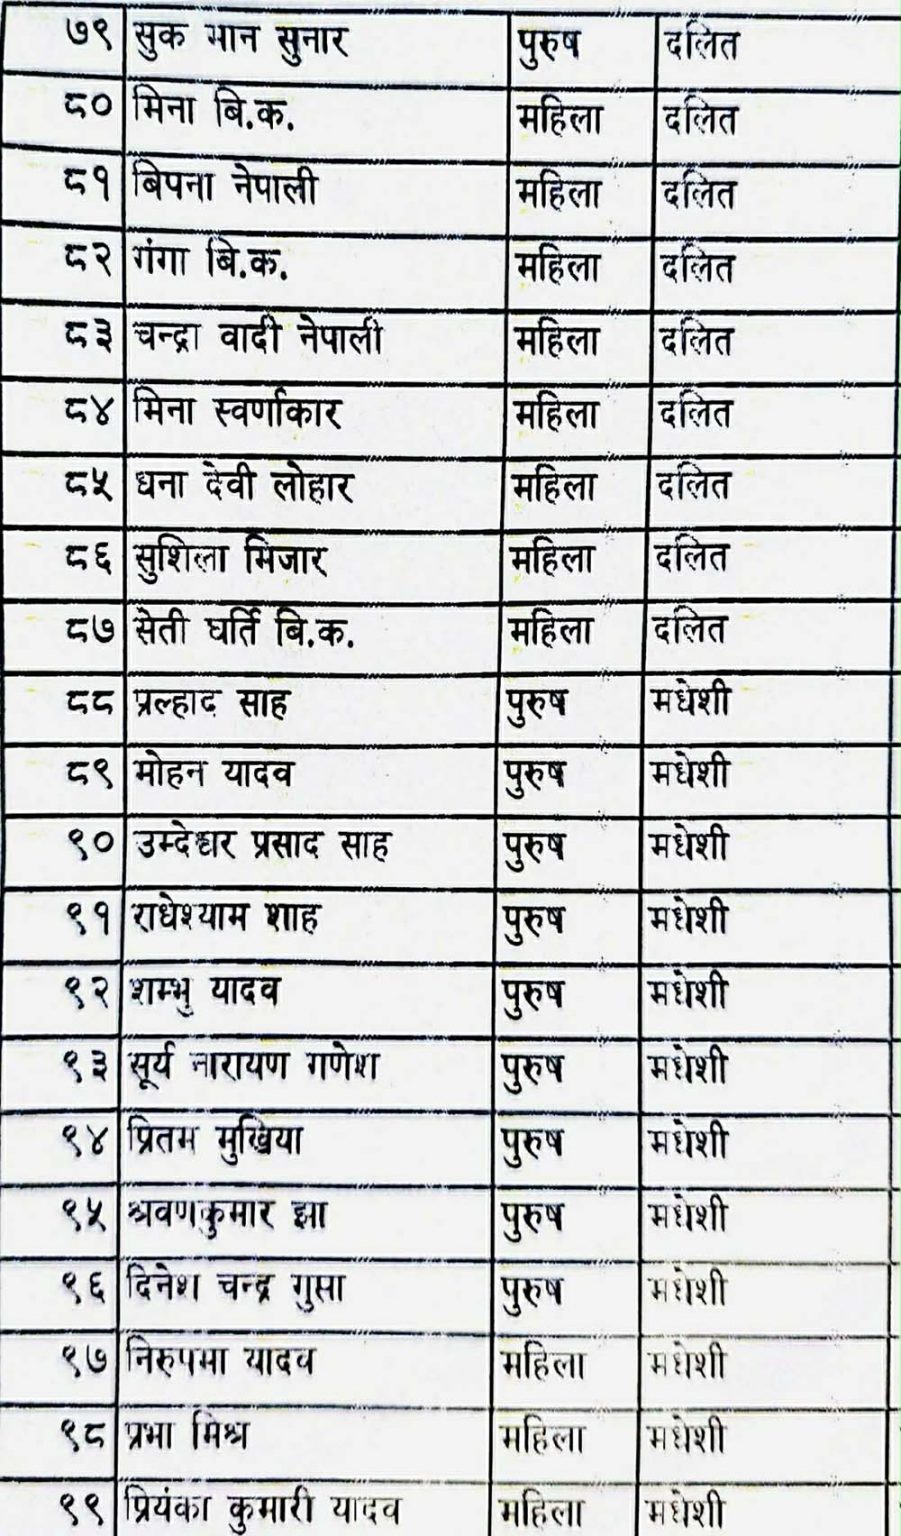 ७९ सुक मान सुनार पुरुष दलित
८० मिना बि.क. महिला दलित
८१ बिपना नेपाली महिला दलित
८२ गंगा बि.क. महिला दलित
८३ चन्द्रा वादी नेपाली महिला दलित
८४ मिना स्वर्णाकार महिला दलित
८५ धना देवी लोहार महिला दलित
८६ सुशिला मिजार महिला दलित
८७ सेती घर्ति बि.क. महिला दलित
८८ प्रल्हाद साह पुरुष मधेशी
८९ मोहन यादव पुरुष मधेशी
९० उम्देश्वर प्रसाद साह पुरुष मधेशी
९१ राधेश्याम शाह पुरुष मधेशी
९२ शम्भु यादव पुरुष मधेशी
९३ सूर्य नारायण गणेश पुरुष मधेशी
९४ प्रितम मुखिया पुरुष मधेशी
९५ श्रवणकुमार झा पुरुष मधेशी
९६ दिनेश चन्द्र गुप्ता पुरुष मधेशी
९७ निरुपमा यादव महिला मधेशी
९८ प्रभा मिश्र महिला मधेशी
९९ प्रियंका कुमारी यादव महिला मधेशी